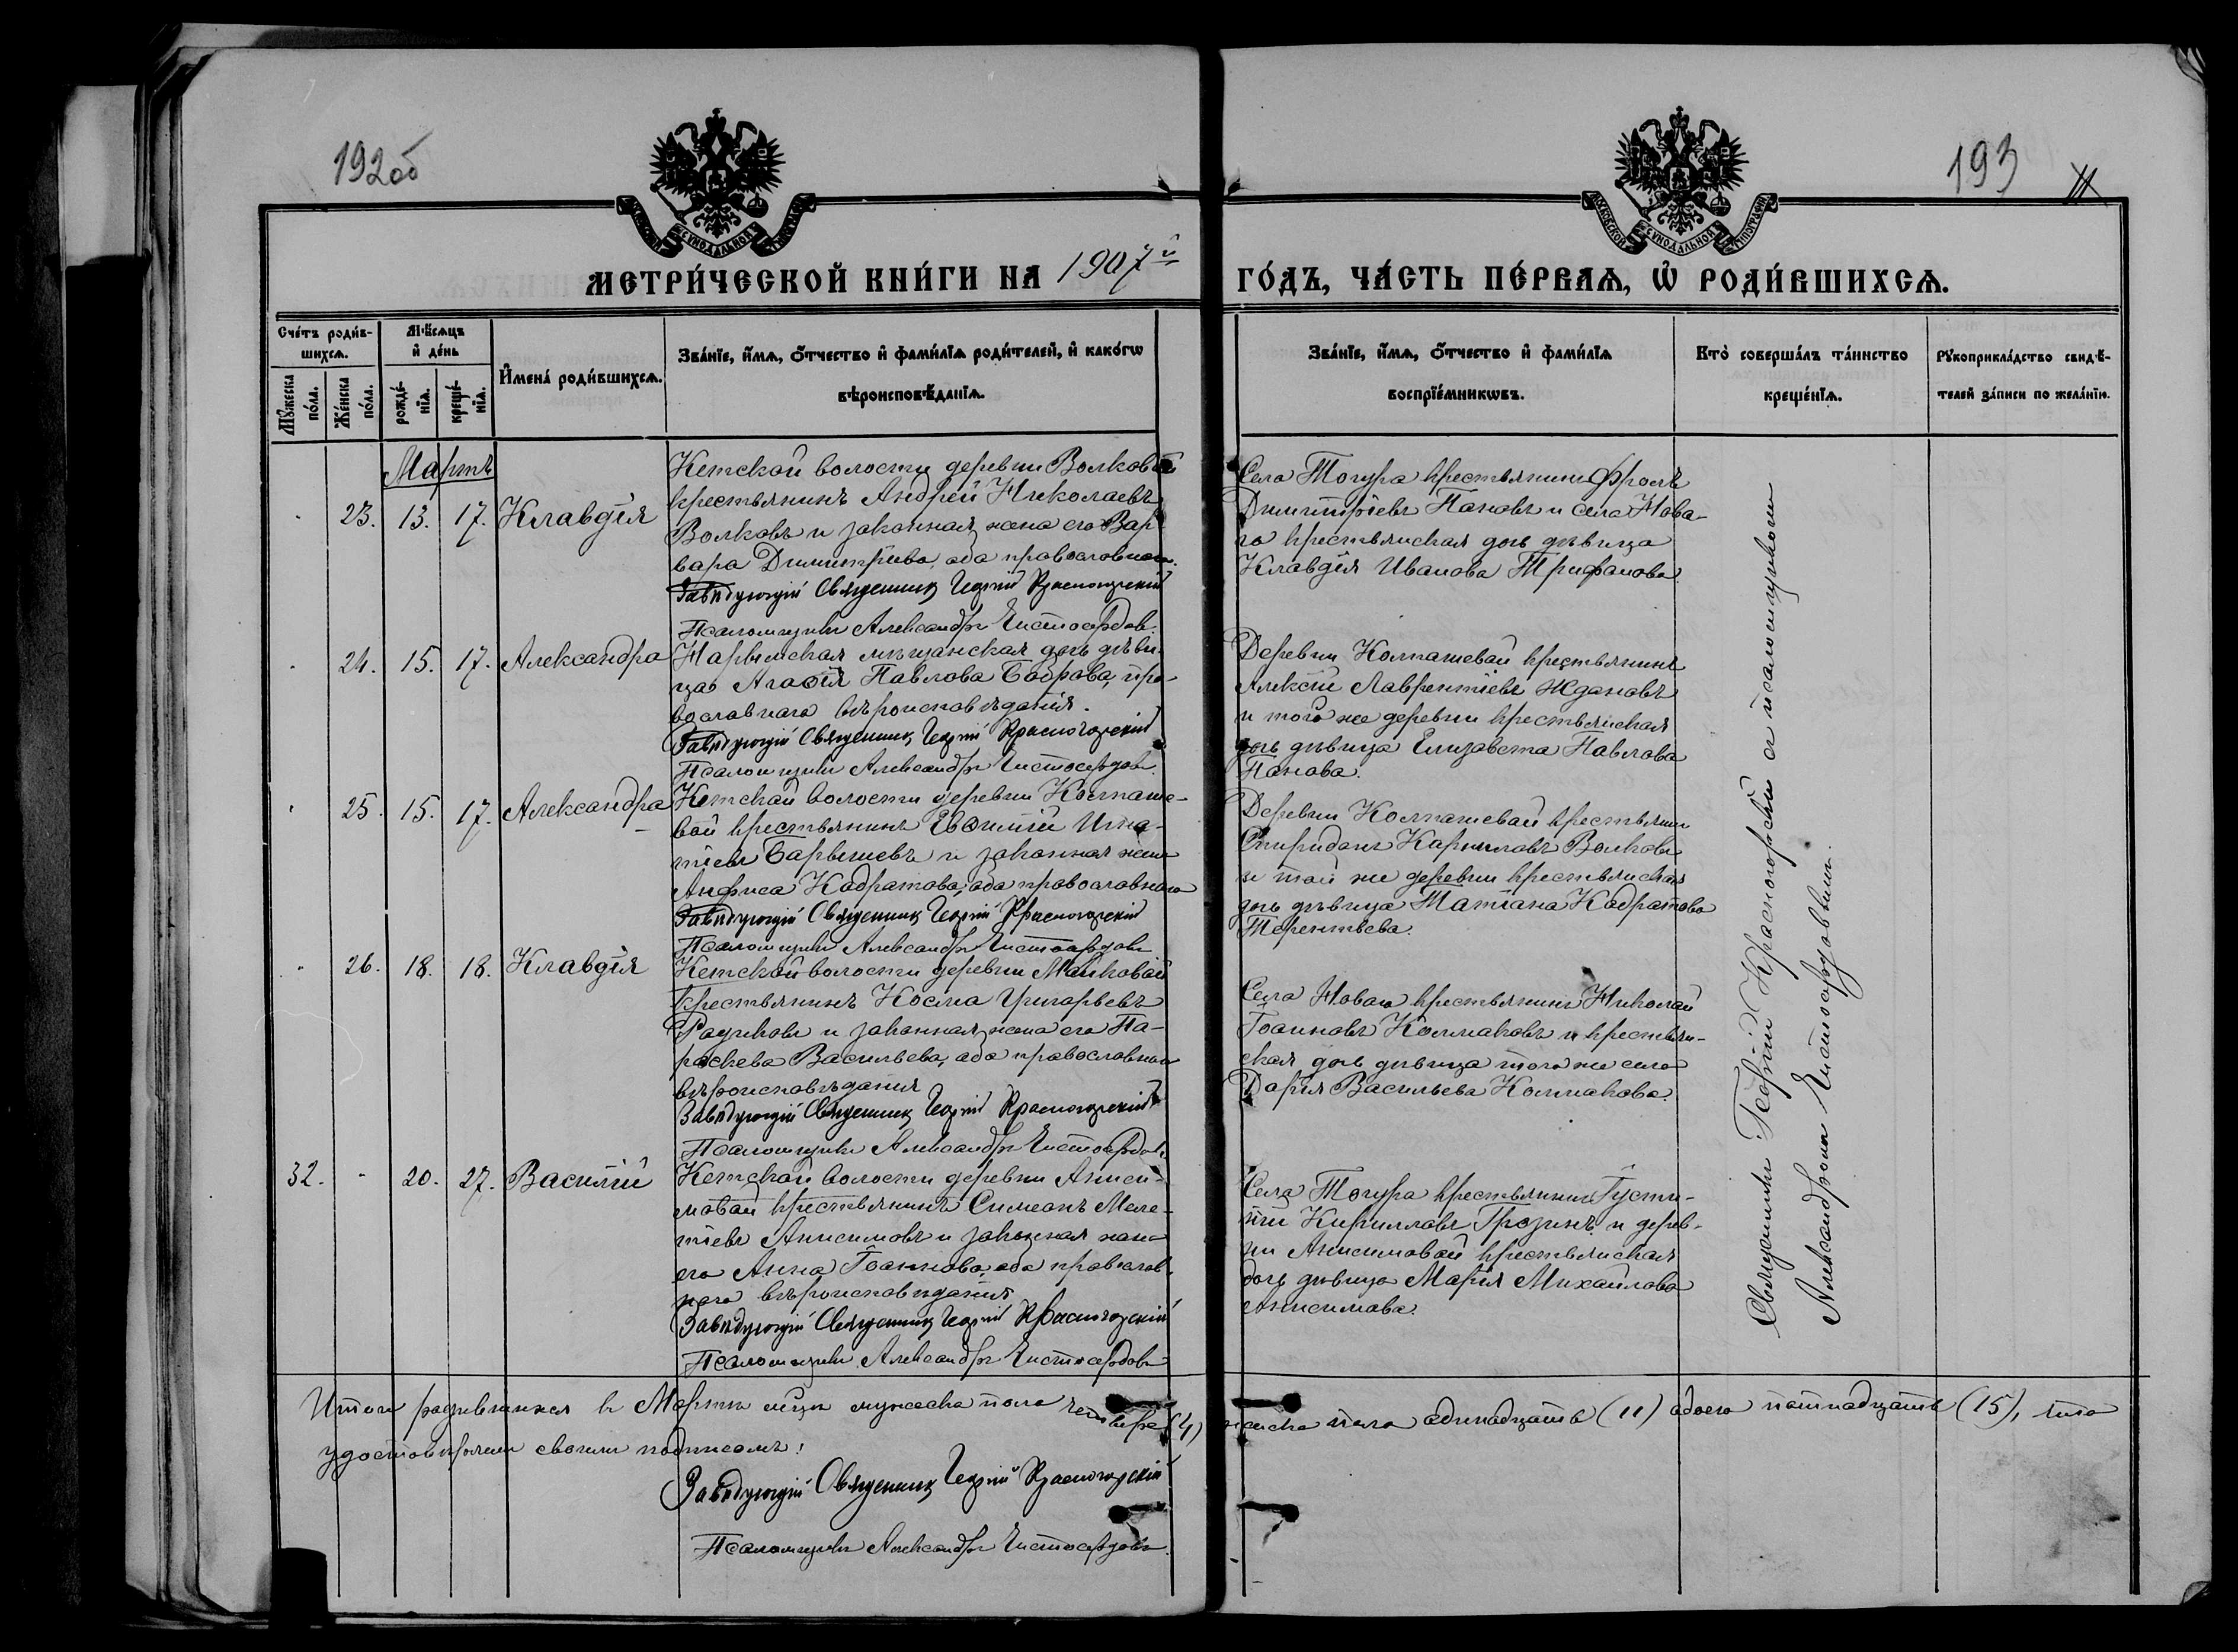 192об
193
МОСКОВСКОЙ СѴНОДАЛЬНОЙ ТИПОГРАФІИ
МЕТРИ́ЧЕСКОЙ КНИ́ГИ НА 1907й
ГО́ДЪ, ЧА́СТЬ ПЕ́РВАѦ, Ѿ РОДИ́ВШИХСѦ.
Сче́тъ роди́в-
шихсѧ.
Мѹ́жеска по́ла.
Же́нска по́ла.
Мѣ́сѧцъ
и҆ де́нь
рожде́-
нїѧ.
креще́-
нїѧ.
И҆мена̀ роди́вшихсѧ.
Зва́нїе, и҆́мѧ, ѻ҆́тчество и҆ фами́лїѧ роди́телей, и҆ како́гѡ
вѣроисповѣ́данїѧ.
Зва́нїе, и҆́мѧ, ѻ҆́тчество и҆ фами́лїѧ
воспрїе́мникѡвъ.
Кто̀ соверша́лъ та́инство
креще́нїѧ.
Рꙋкоприкла́дство свидѣ́-
телей за́писи по жела́нїю.
Мартъ
23. 13. 17. Клавдія
Кетской волости деревни Волковой
крестьянинъ Андрей Николаевъ
Волковъ и законная жена его Вар
вара Димитріева, оба православнаго.
Завѣдующій Священникъ Георгій Красногорскій
Псаломщикъ Александръ Чистосердовъ
Села Тогура крестьянинъ Фролъ
Димитріевъ Пановъ и села Нова-
го крестьянская дочь дѣвица
Клавдія Иванова Трифонова
24. 15. 17. Александра
Нарымская мѣщанская дочь дѣви-
ца Агафія Павлова Боброва, пра-
вославнаго вѣроисповѣданія.
Завѣдующій Священникъ Георгій Красногорскій
Псаломщикъ Александръ Чистосердовъ
Деревни Колпашевой крестьянинъ
Алексѣй Лаврентіевъ Ждановъ
и того же деревни крестьянская
дочь дѣвица Елизавета Павлова
Панова.
25. 15. 17. Александра
Кетской волости деревни Колпаше-
вой крестьянинъ Евѳимій Игна-
тіевъ Барышевъ и законная жена
Анфиса Кодратова, оба православнаго
Завѣдующій Священникъ Георгій Красногорскій
Псаломщикъ Александръ Чистосердовъ
Деревни Колпашевой крестьянинъ
Спиридонъ Карниловъ Волковъ
и той же деревни крестьянская
дочь дѣвица Татіана Кодратова
Терентьева.
26. 18. 18. Клавдія
Кетской волости деревни Майковой
крестьянинъ Косма Григорьевъ
Родиковъ и законная жена его Па-
раскева Васильева, оба православнаго
вѣроисповѣданія
Завѣдующій Священникъ Георгій Красногорскій
Псаломщикъ Александръ Чистосердовъ
Села Новаго крестьянинъ Николай
Іоанновъ Колмаковъ и крестьян-
ская дочь дѣвица того же села
Дарія Васильева Колмакова.
32. 20. 27. Василій
Кетской волости деревни Аниси-
мовой крестьянинъ Симеонъ Меле-
тіевъ Анисимовъ и законная жена
его Анна Іоаннова, оба православ-
наго вѣроисповѣданія
Завѣдующій Священникъ Георгій Красногорскій
Псаломщикъ Александръ Чистосердовъ
Села Тогура крестьянинъ Іусти-
ній Кирилловъ Грозинъ и дерев-
ни Анисимовой крестьянская
дочь дѣвица Марія Михайлова
Анисимова.
Священникъ Георгій Красногорскій съ псаломщикомъ
Александромъ Чистосердовымъ.
Итого родившихся въ Мартѣ мѣцѣ мужеска пола четыре (4) женска пола одинадцать (11) обоего пятнадцать (15), что
удостовѣряемъ своимъ подписомъ:
Завѣдующій Священникъ Георгій Красногорскій
Псаломщикъ Александръ Чистосердовъ